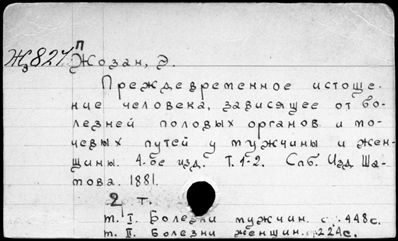 П
Ж₃827. Жозан, Э.
Преждевременное истоще-
ние человека, зависящее от бо-
лезней половых органов и мо-
чевых путей у мужчины и жен-
щины. 4-ое изд. Т. 1-2. Спб. Изд Ша-
това. 1881.
2 т.
т. I. Болезни мужчин. с. 448с.
т. II. Болезни женщин. 224с.